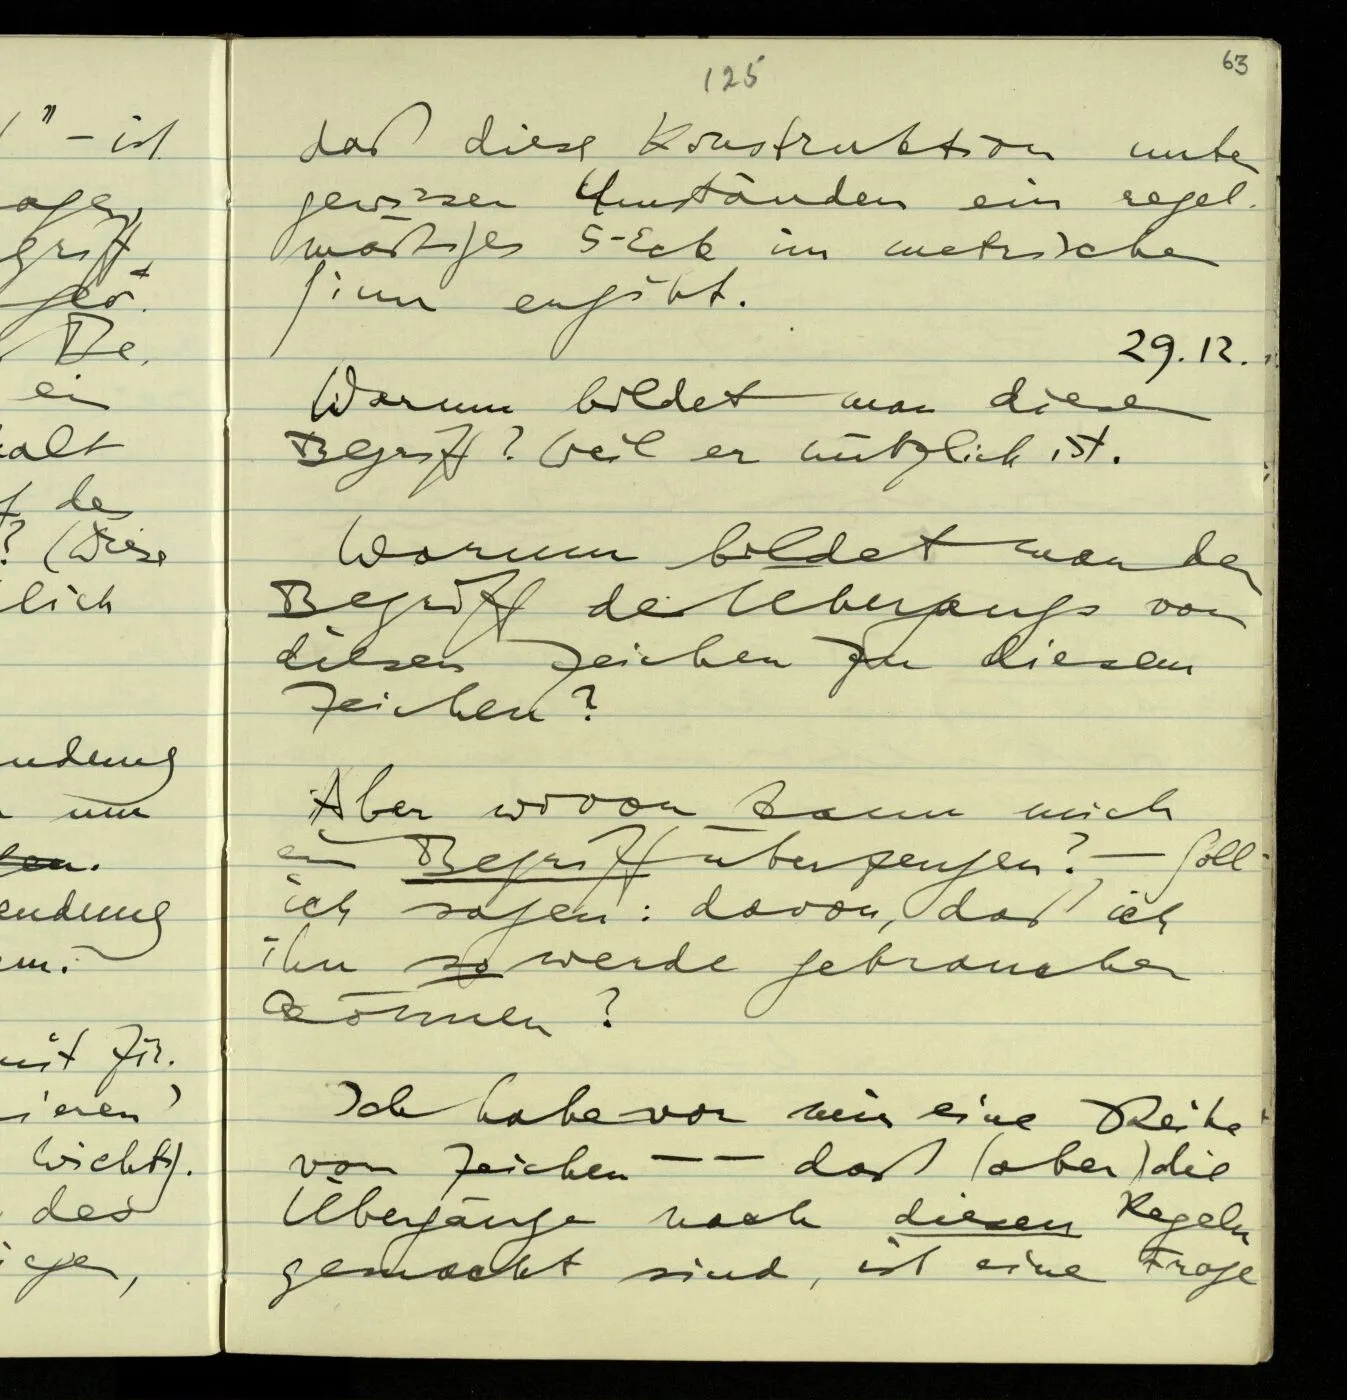 125
63
daß diese Konstruktion unter
gewissen Umständen ein regel-
mäßiges 5-Eck im metrischen
Sinn ergibt.
29.12.
Warum bildet man diesen
Begriff? Weil er nützlich ist.
Warum bildet man den
Begriff des Übergangs von
diesen Zeichen zu diesem
Zeichen?
Aber wovon kann mich
ein Begriff überzeugen? — Soll
ich sagen: davon, daß ich
ihn so werde gebrauchen
können?
Ich habe vor mir eine Reihe
von Zeichen — — daß (aber) die
Übergänge nach diesen Regeln
gemacht sind, ist eine Frage
" – ist
griff
De
ein
halt
f des
? (Diese
lich
endung
um
endung
mit
ieren
wichtig.
des